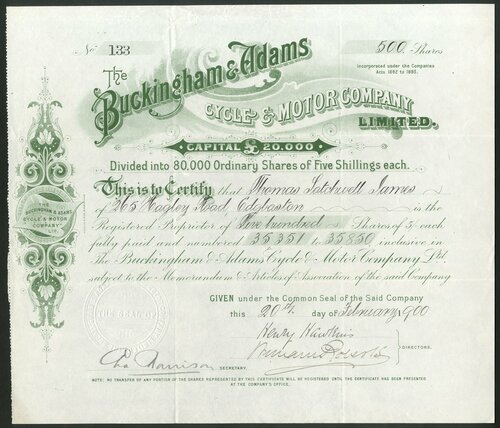 No 133
500 Shares
Incorporated under the Companies
Acts. 1862 to 1898.
The
Buckingham & Adams
CYCLE & MOTOR COMPANY
LIMITED.
CAPITAL £20,000
Divided into 80,000 Ordinary Shares of Five Shillings each.
This is to Certify that Thomas James
of 265 Hagley Road Edgbaston is the
Registered Proprietor of Five hundred Shares of 5/ each
fully paid and numbered 35351 to 35850 inclusive in
The Buckingham & Adams Cycle & Motor Company Ltd.
subject to the Memorandum & Articles of Association of the said Company
THE
BUCKINGHAM & ADAMS
CYCLE & MOTOR
COMPANY
LTD.
GIVEN under the Common Seal of the Said Company
this 20th. day of February 1900
Henry Hawkins
DIRECTORS.
SECRETARY.
NOTE: NO TRANSFER OF ANY PORTION OF THE SHARES REPRESENTED BY THIS CERTIFICATE WILL BE REGISTERED UNTIL THE CERTIFICATE HAS BEEN PRESENTED
AT THE COMPANY'S OFFICE.